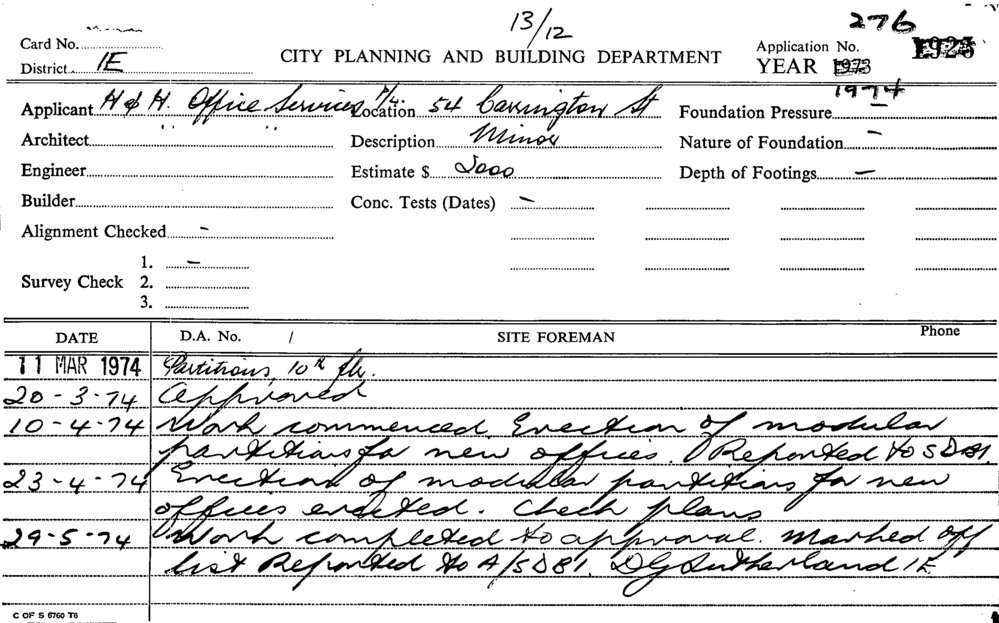 13/12
276
Card No.
CITY PLANNING AND BUILDING DEPARTMENT
Application No. 1923
District IE
YEAR 1973
1974
Applicant H & H. Office Services P/L. Location 54 Carrington St Foundation Pressure —
Architect " " Description Minor Nature of Foundation —
Engineer Estimate $ 2000 Depth of Footings —
Builder Conc. Tests (Dates) —
Alignment Checked —
1. —
Survey Check 2.
3.
DATE D.A. No. / SITE FOREMAN Phone
11 MAR 1974 Partitions, 10th flr.
20-3-74 Approved
10-4-74 Work commenced. Erection of modular
partitions for new offices. Reported to SDBI.
23-4-74 Erection of modular partitions for new
offices erected. Check plans
29-5-74 Work completed to approval. Marked off
list Reported to A/SDBI. DG Sutherland IE
C OF S 6760 T6